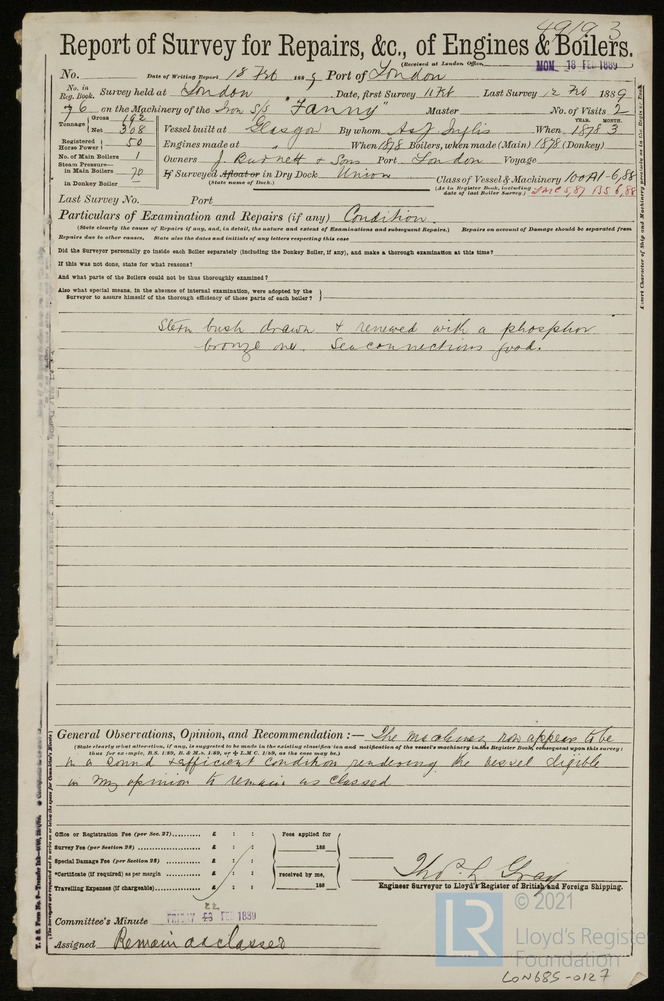 49193
Report of Survey for Repairs, &c., of Engines & Boilers.
(Received at London Office, MON. 18 FEB 1889
No. Date of Writing Report 18 Feb 1889 Port of London
No. in Reg. Book. Survey held at London Date, first Survey 11 Feb Last Survey 12 Feb 1889
76 on the Machinery of the Iron S/S "Fanny" Master No. of Visits 2
Tonnage Gross 192 Net 308 Vessel built at Glasgow By whom A & J Inglis When 1878 YEAR. MONTH. 3
Registered Horse Power 50 Engines made at " When 1878 Boilers, when made (Main) 1878 (Donkey)
No. of Main Boilers 1 Owners J. Burnett & Sons Port London Voyage
Steam Pressure— in Main Boilers 70 If Surveyed Afloat or in Dry Dock Union Class of Vessel & Machinery 100A1-6,88
in Donkey Boiler (State name of Dock.) (As in Register Book, including date of last Boiler Survey.) LMC 5,87 BS 6,88
Last Survey No. Port
Particulars of Examination and Repairs (if any) Condition.
(State clearly the cause of Repairs if any, and, in detail, the nature and extent of Examinations and subsequent Repairs.) Repairs on account of Damage should be separated from
Repairs due to other causes. State also the dates and initials of any letters respecting this case
Did the Surveyor personally go inside each Boiler separately (including the Donkey Boiler, if any), and make a thorough examination at this time?
If this was not done, state for what reasons?
And what parts of the Boilers could not be thus thoroughly examined?
Also what special means, in the absence of internal examination, were adopted by the
Surveyor to assure himself of the thorough efficiency of those parts of each boiler?
Stern bush drawn & renewed with a phosphor
bronze one. Sea connections good.
General Observations, Opinion, and Recommendation :— The machinery now appears to be
(State clearly what alteration, if any, is suggested to be made in the existing classification and notification of the vessel's machinery in the Register Book, consequent upon this survey;
thus for example, B.S. 1/89, B. & M.S. 1/89, or L.M.C. 1/89, as the case may be.)
in a sound & efficient condition rendering the vessel eligible
in my opinion to remain as classed
Office or Registration Fee (per Sec. 27) £ : : Fees applied for
Survey Fee (per Section 28) £ : : 188
Special Damage Fee (per Section 28) £ : :
*Certificate (if required) as per margin £ : : received by me,
Travelling Expenses (if chargeable) £ : : 188
Thos. L Gray
Engineer Surveyor to Lloyd's Register of British and Foreign Shipping.
22
Committee's Minute FRIDAY FEB 1889
Assigned Remain as classed
© 2021
LR Lloyd's Register
Foundation
LON685-0127